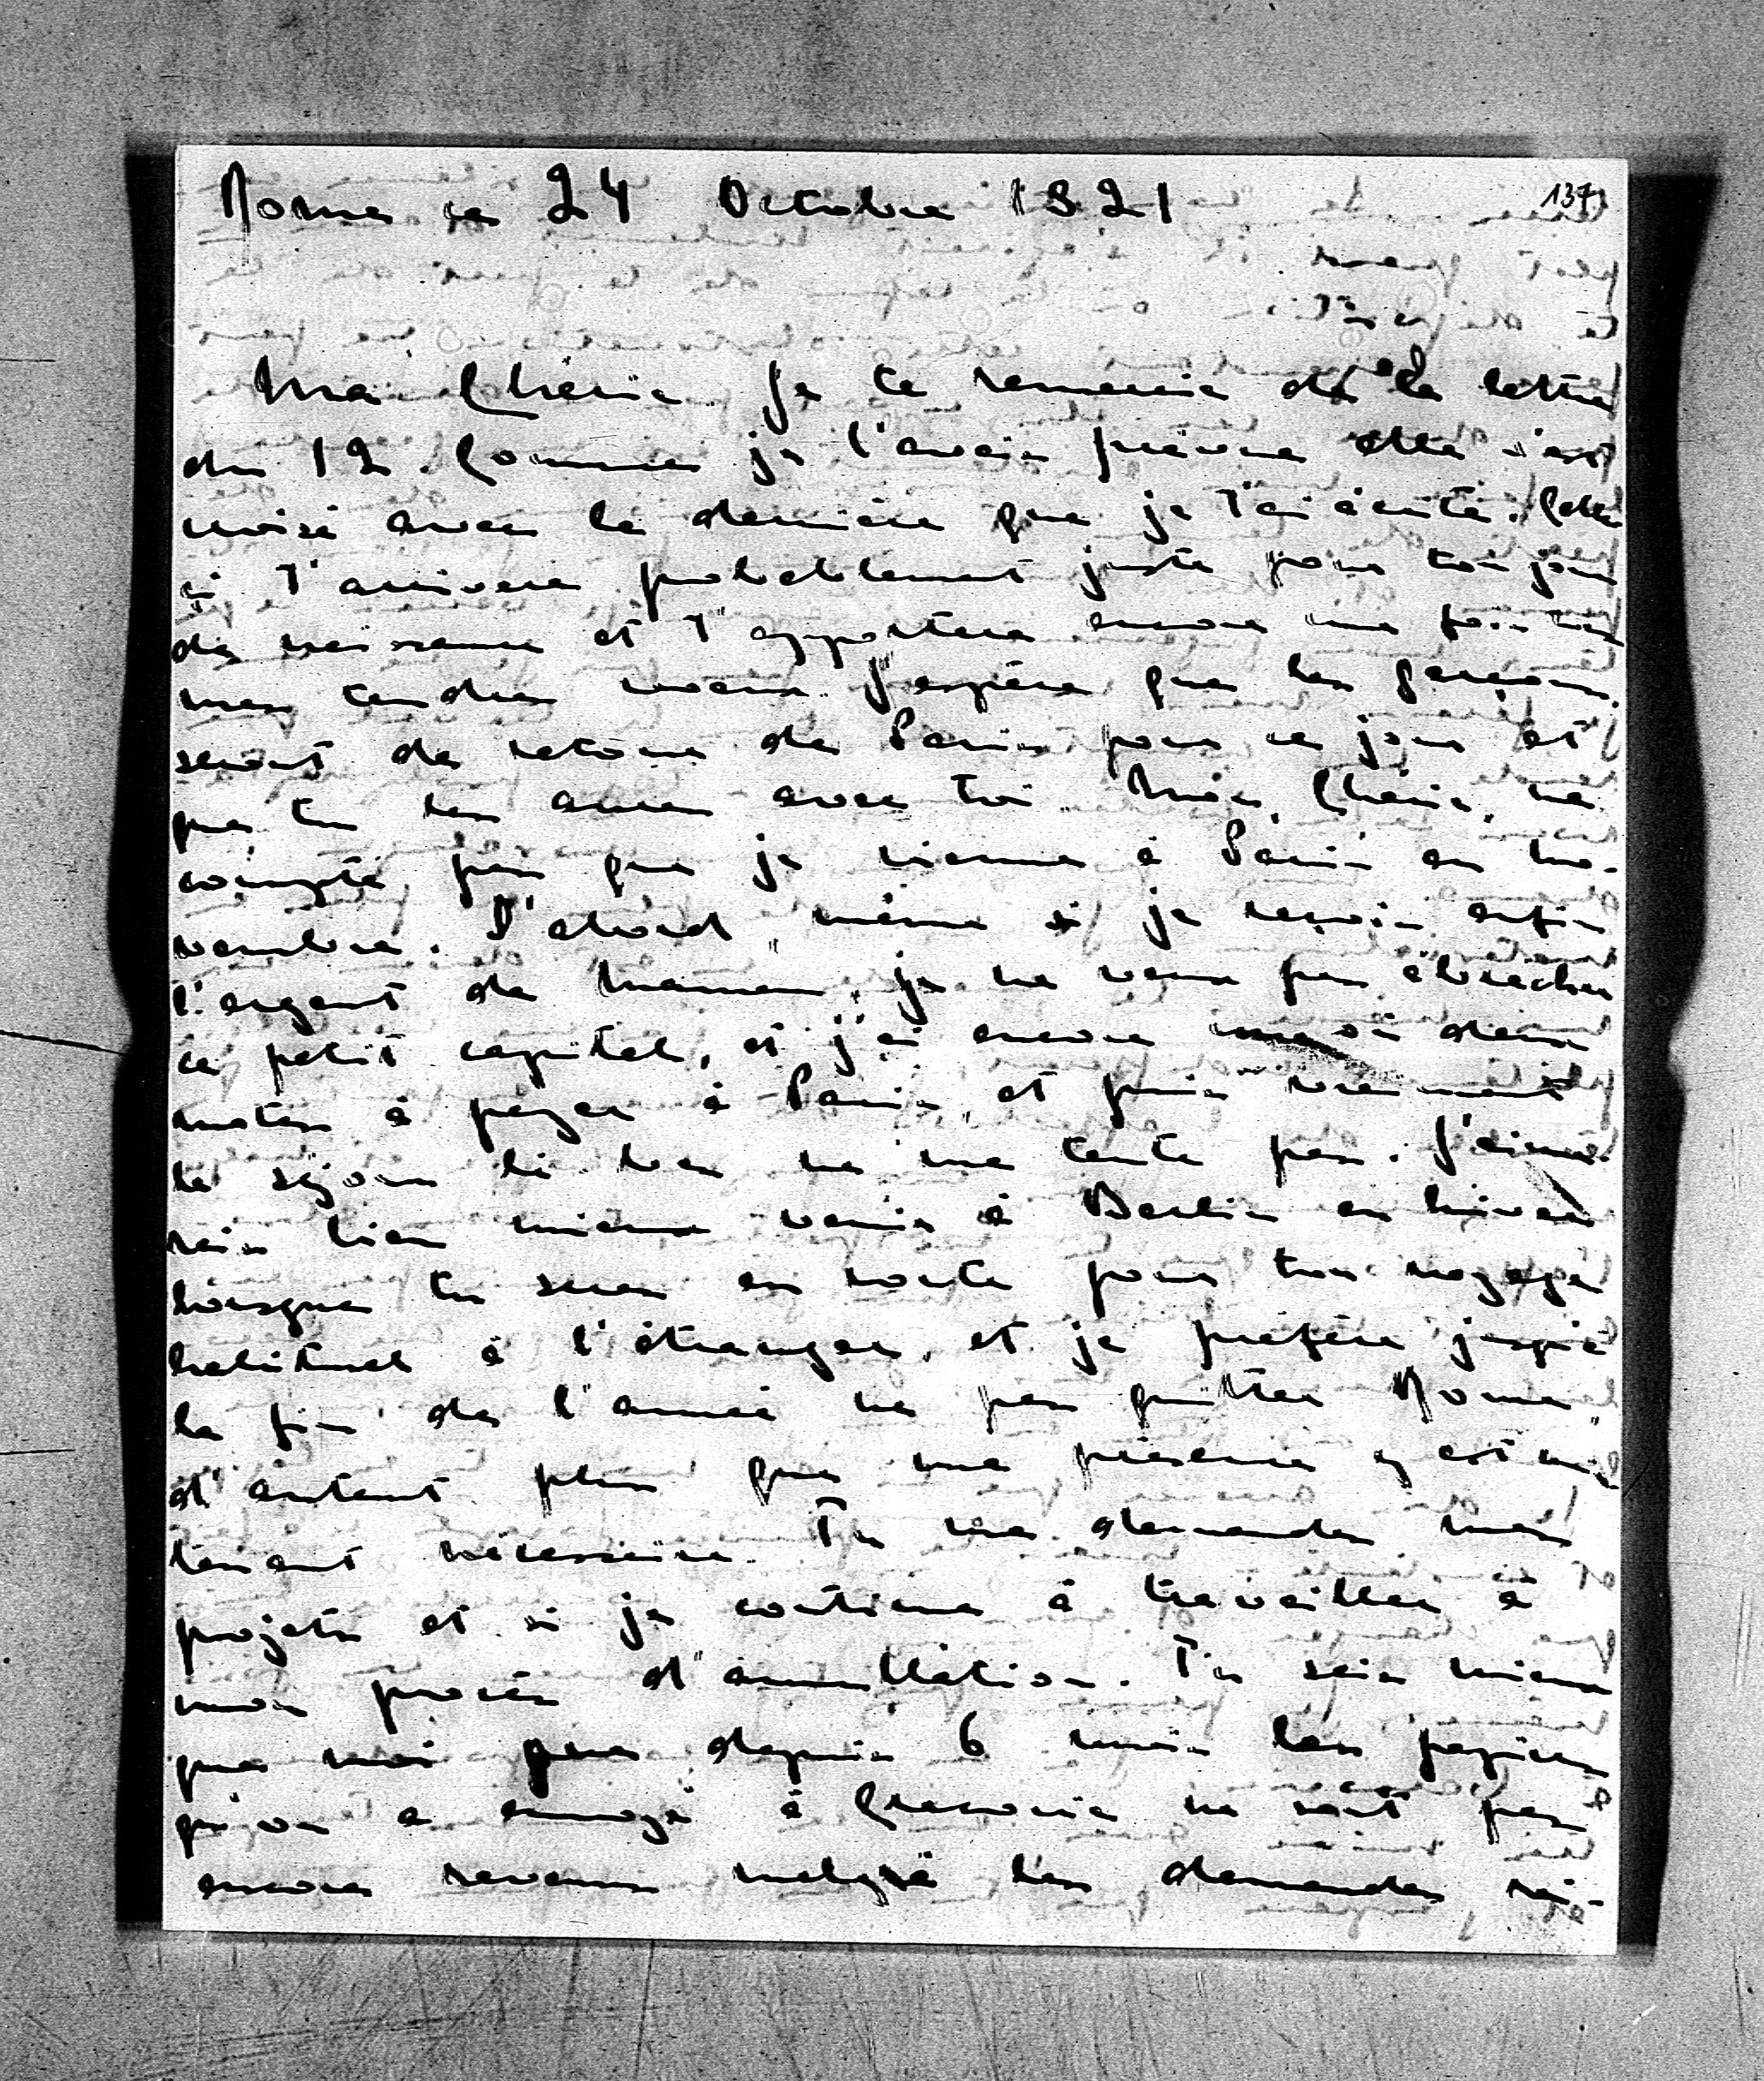 Rome ce 24 Octobre 1921
137
Ma Chérie Je te remercie de ta lettre
du 12. Comme je l'avais prévu elle s'est
croisé avec la dernière que je t'ai écrite. Cette
ci t'arrivera probablement juste pour ton jour
de naissance et t'apportera encore une fois tous
mes tendres voeux. J'espère que les garçons
seront de retour de Paris pour ce jour et
que tu les auras avec toi. Mais, Chérie, ne
compte pas que je vienne à Paris en No-
vembre. D'abord même si je reçois enfin
l'argent de Maman, je ne veux pas ébrécher
ce petit capital, et j'ai encore une ou deux
notes à payer à Paris, et puis vraiment
le séjour là bas ne me tente pas. J'aime-
rais bien mieux venir à Berlin en hiver
lorsque tu seras en route pour ton voyage
habituel à l'étranger, et je préfère jusqu'à
la fin de l'année ne pas quitter Rome,
d'autant plus que ma présence y est main-
tenant nécessaire. Tu me demandes mes
projets et si je continue à travailler à
mon procès d'annullation. Tu sais mieux
que moi que depuis 6 mois les papiers
qu'on a envoyé à Cracovie ne sont pas
encore revenus malgré les demandes réi-